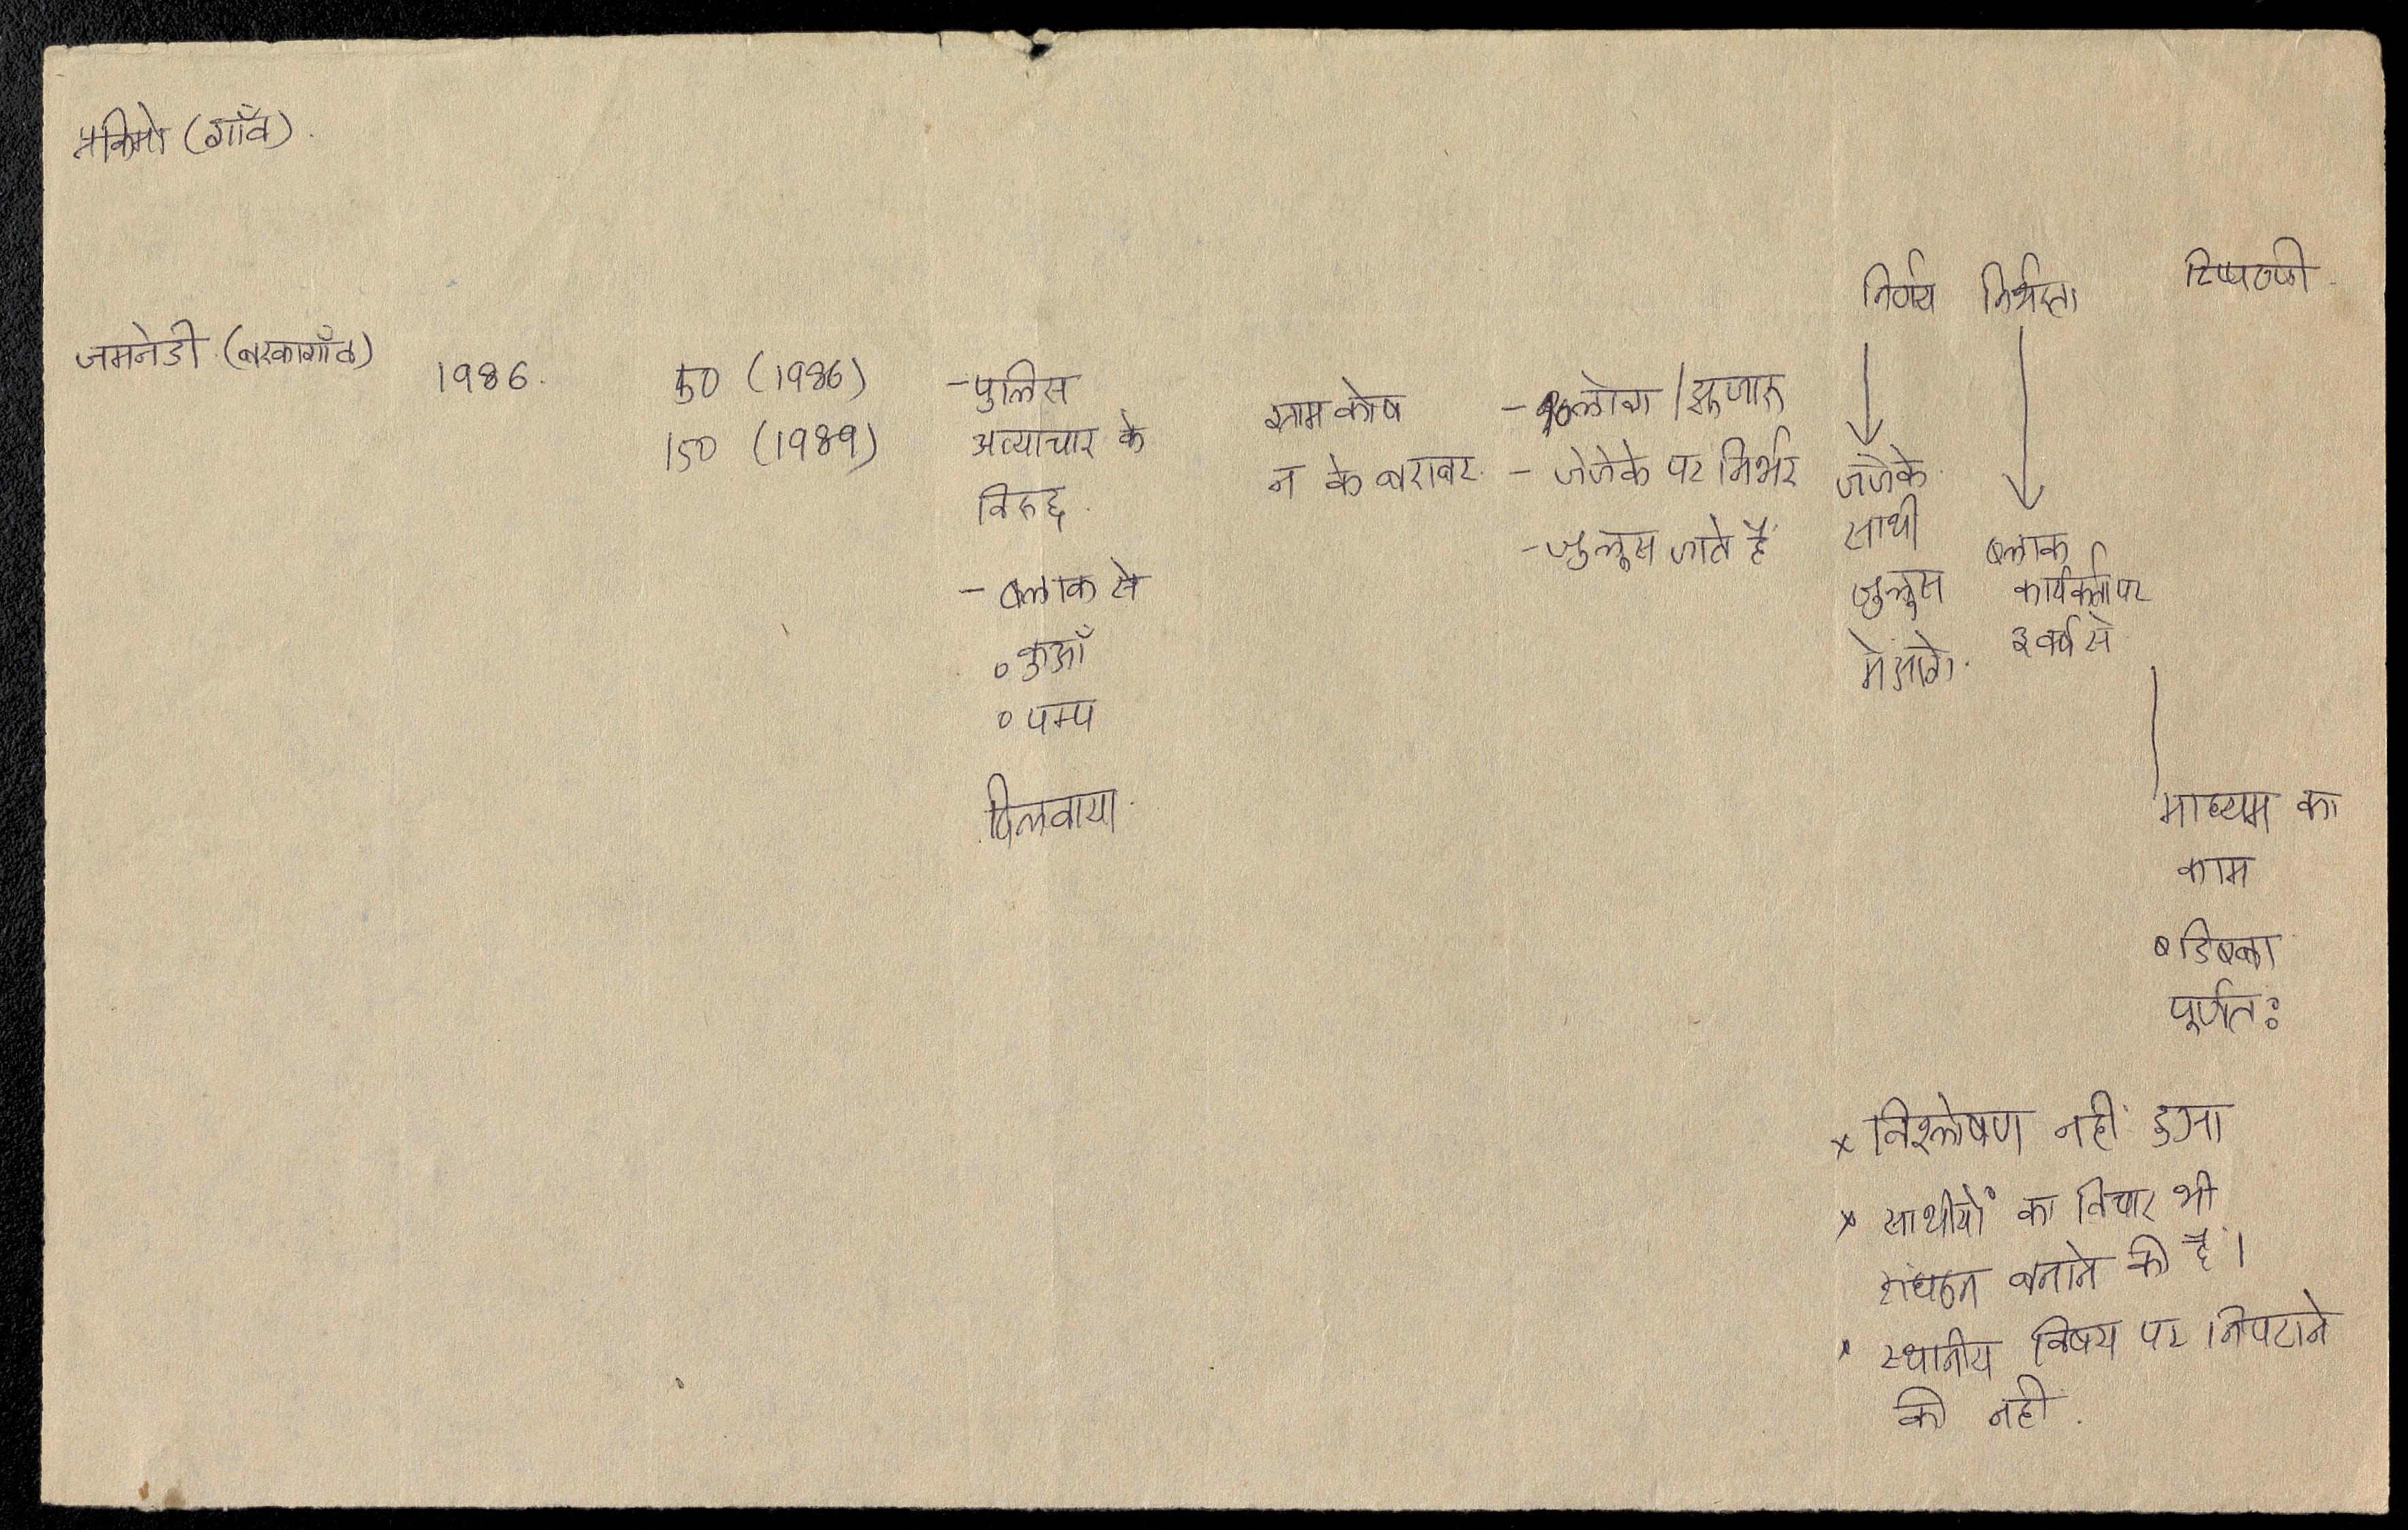 (गाँव).
निर्णय निर्भरता टिप्पणी.
जमनेडी (बरकागाँव)
1986.
50 (1986)
150 (1989)
- पुलिस
अत्याचार के
विरुद्ध.
- ब्लाक से
० कुआँ
० पम्प
दिलवाया.
ग्राम कोष
न के बराबर.
- लोग / झुजारु
- जेजेके पर निर्भर
- जुलूस जाते हैं
जेजेके.
साथी
जुलूस
में आगे.
ब्लाक
कार्यकर्ता पर
३ वर्ष से
माध्यम का
काम
पूर्णतः
x विश्लेषण नहीं हुआ
x साथीयों का विचार भी
संघठन बनाने की है।
x स्थानीय विषय पर निपटाने
की नहीं.